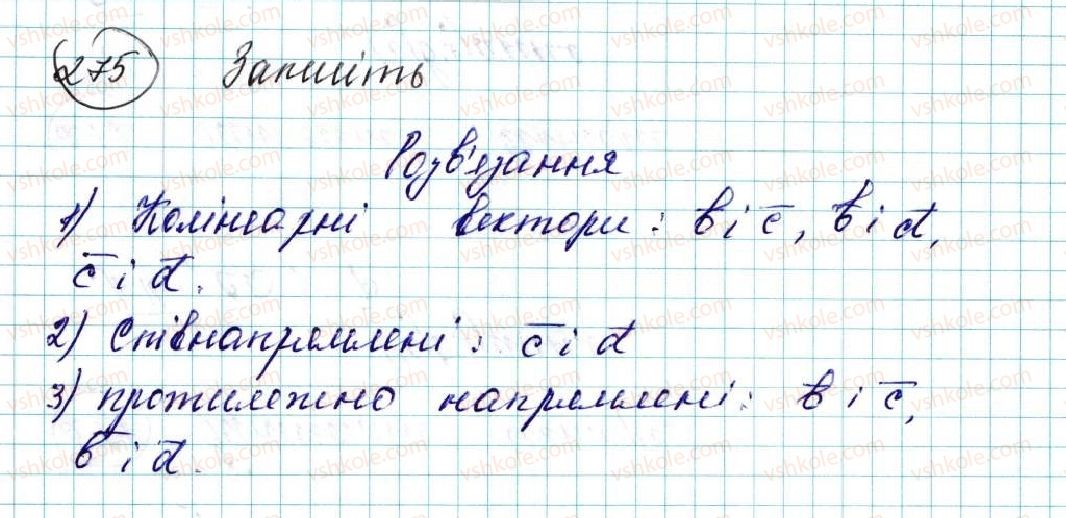 275 Запишіть
Розв'язання
1) Колінеарні вектори: b̅ і c̅, b̅ і d̅,
c̅ і d̅.
2) Співнапрямлені: c̅ і d̅
3) протилежно напрямлені: b̅ і c̅,
b̅ і d̅.